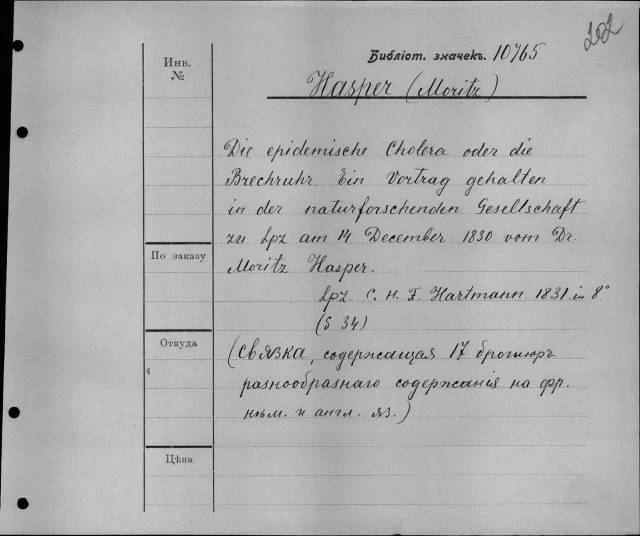 202
Библіот. значекъ. 10765
Инв.
№
Hasper (Moritz)
Die epidemische Cholera oder die
Brechruhr. Ein Vortrag gehalten
in der naturforschenden Gesellschaft
zu Lpz am 14 December 1830 vom Dr.
Moritz Hasper.
По заказу
Lpz. C. H. F. Hartmann. 1831. in 8°
(S 34)
Откуда
(Связка, содержащая 17 брошюръ
разнообразнаго содержанія на фр.
нѣм. и англ. яз.)
Цѣна